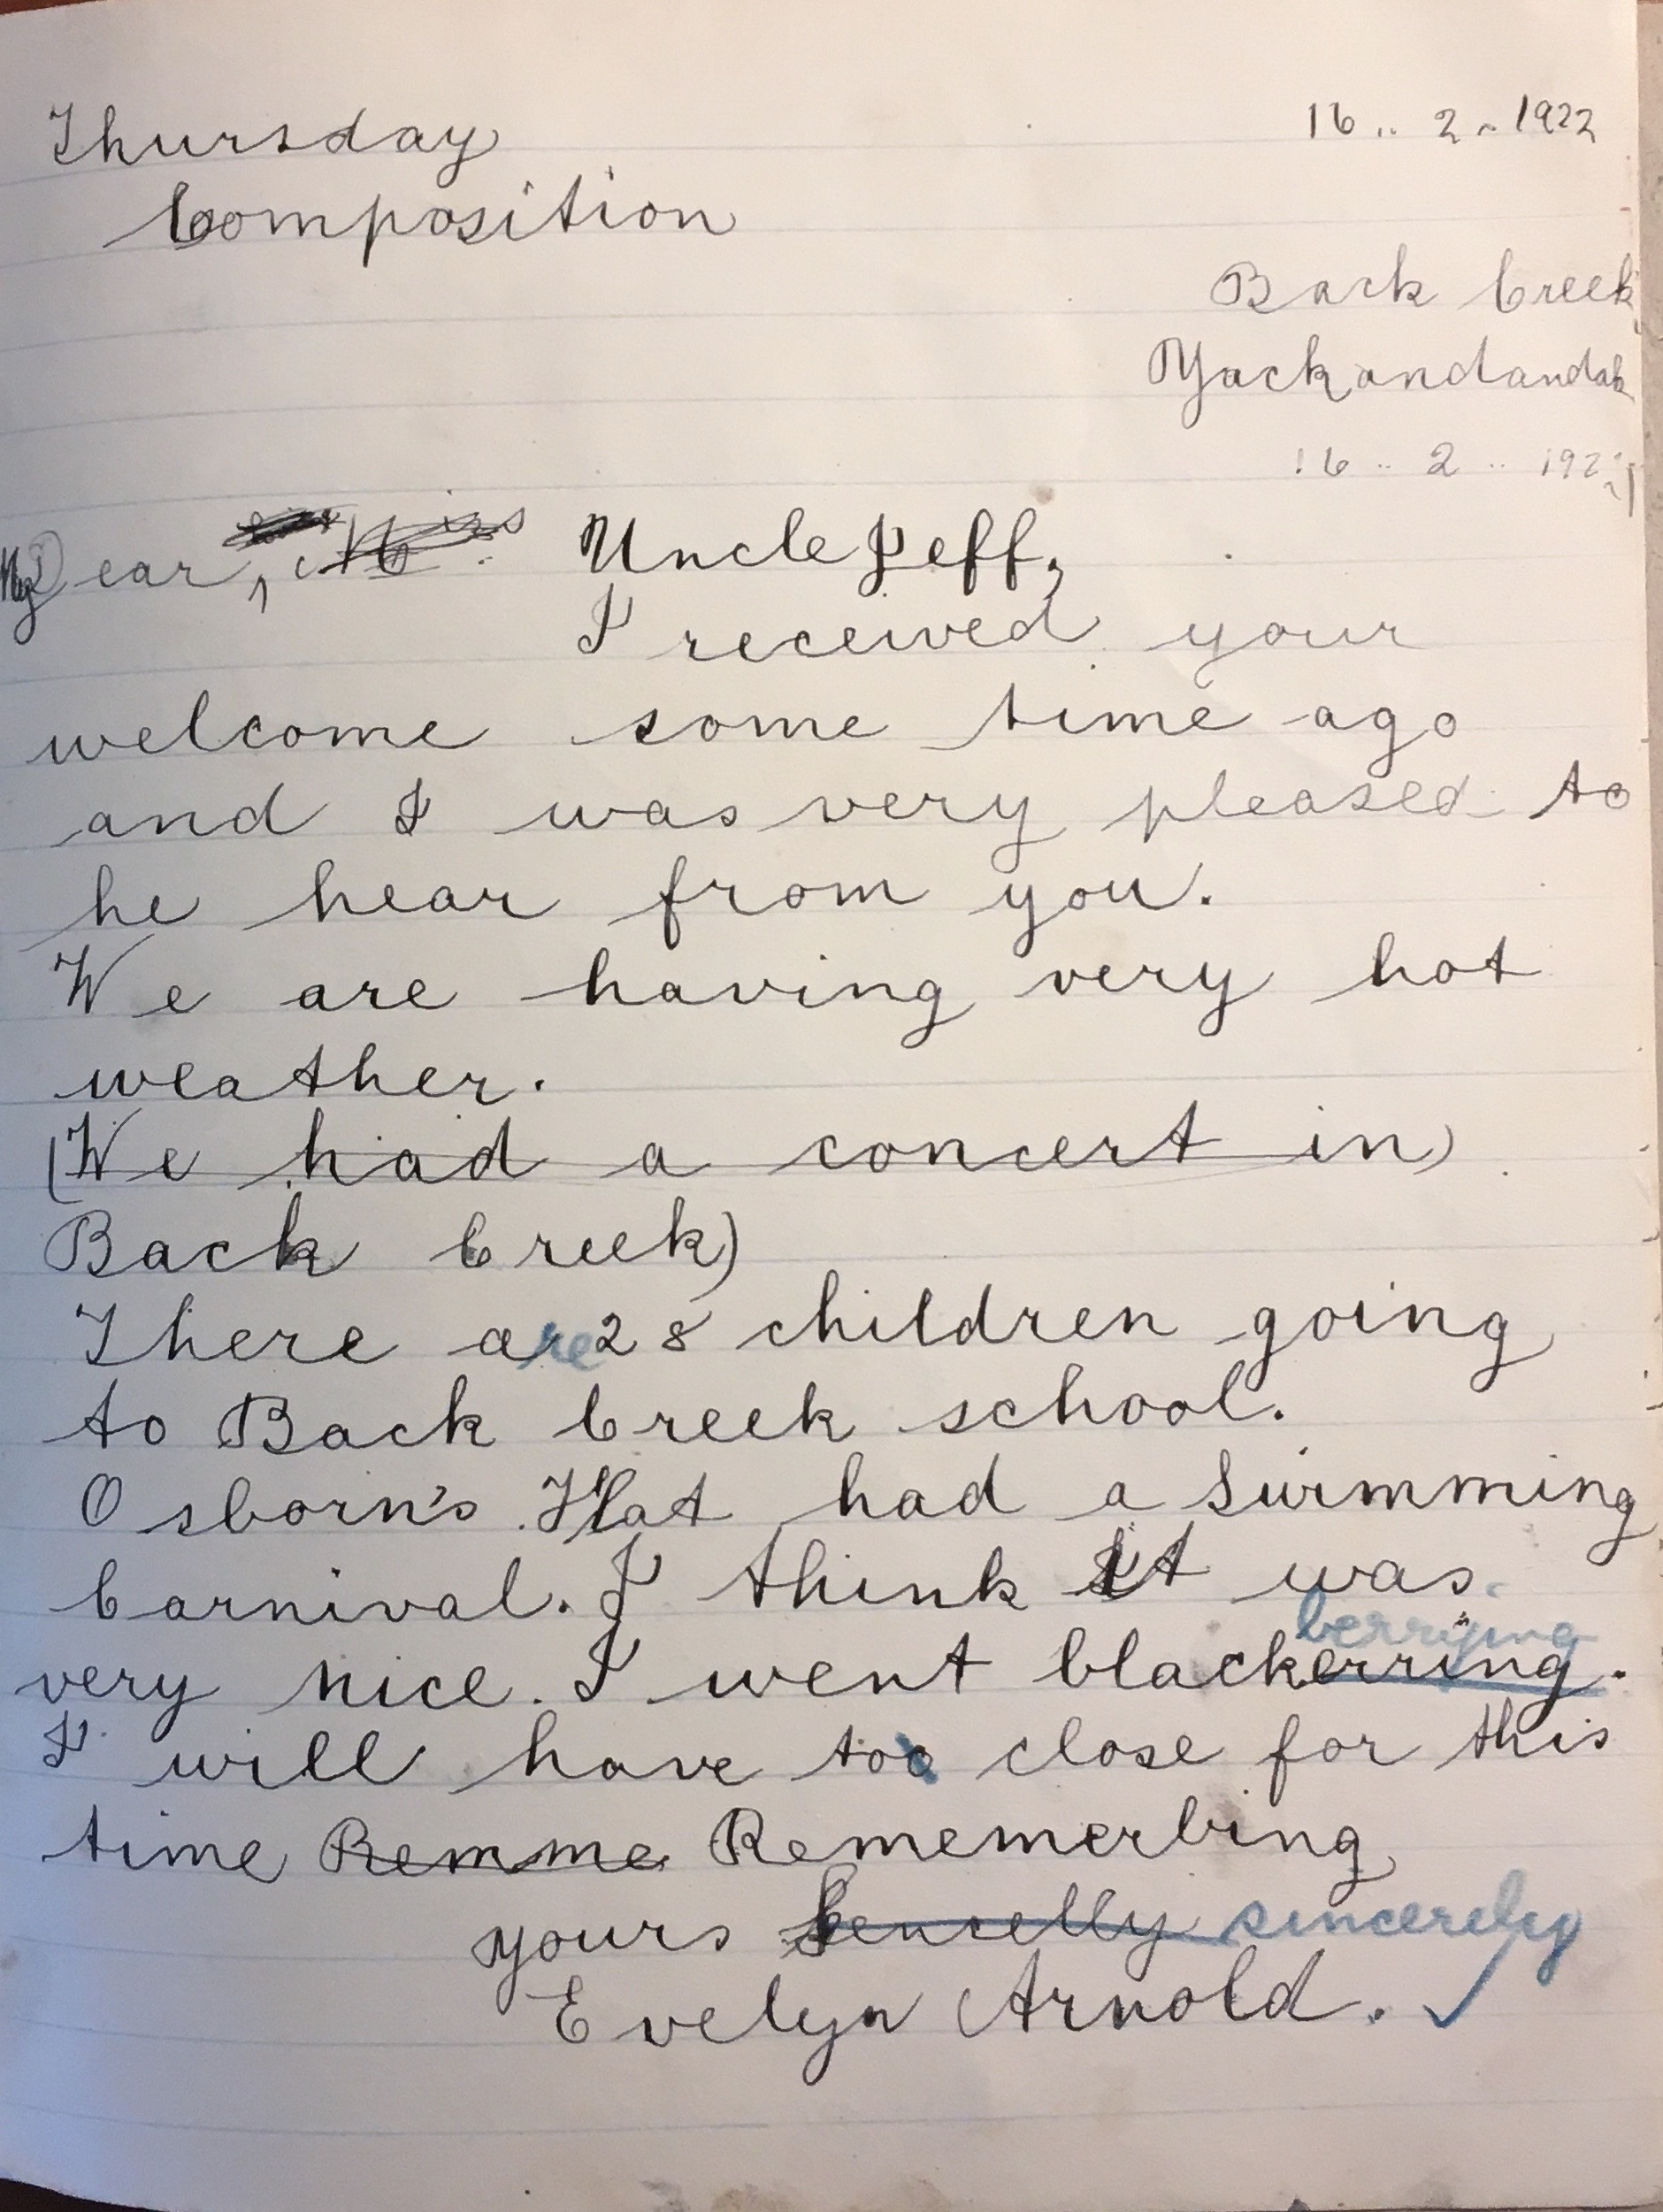 Thursday 16..2..1922
Composition
Back Creek
Yackandandah
16..2..192
My Dear, Uncle Jeff,
I received your
welcome some time ago
and I was very pleased to
he hear from you.
We are having very hot
weather.
(We had a concert in)
Back Creek)
There are 28 children going
to Back Creek school.
Osborn's Flat had a Swimming
Carnival. I think it was
berrying
very nice. I went blackerring.
I will have too close for this
time Remme Rememerbing
yours sencelly sincereley
Evelyn Arnold.